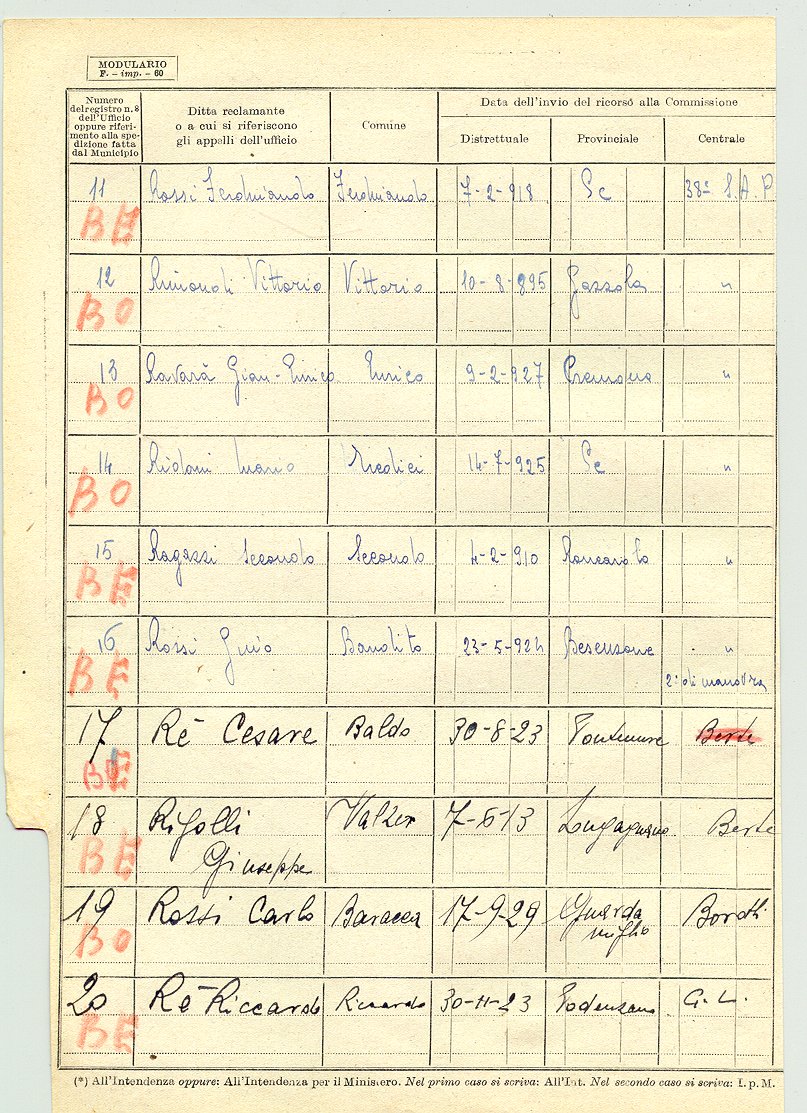 MODULARIO
F. - imp. - 60
Numero del registro n. 8 dell'Ufficio oppure riferimento alla spedizione fatta dal Municipio
Ditta reclamante o a cui si riferiscono gli appelli dell'ufficio
Comune
Data dell'invio del ricorso alla Commissione
Distrettuale
Provinciale
Centrale
11 Rossi Ferdinando Ferdinando 7-2-918 Pc 38ª S.A.P
BE
12 Vittorio Vittorio 10-8-895 Gazzola "
BO
13 Ravarà Gian-Enrico Enrico 9-2-927 Cremona "
BO
14 Ridoni Mario Medici 14-7-925 Pc "
BO
15 Ragazzi Secondo Secondo 4-2-910 Roncarolo "
BE
16 Rossi Gino Bandito 23-5-924 Besenzone "
BE 2ª di manovra
17 Ré Cesare Baldo 30-8-23 Pontenure Berte
BE
18 Rigolli Valzer 7-6-13 Lugagnano Berte
BE Giuseppe
19 Rossi Carlo Baracca 17-9-29 Guarda
BO miglio
20 Ré Riccardo Riccardo 30-11-23 Podenzano G. L.
BE
(*) All'Intendenza oppure: All'Intendenza per il Ministero. Nel primo caso si scriva: All'Int. Nel secondo caso si scriva: I. p. M.